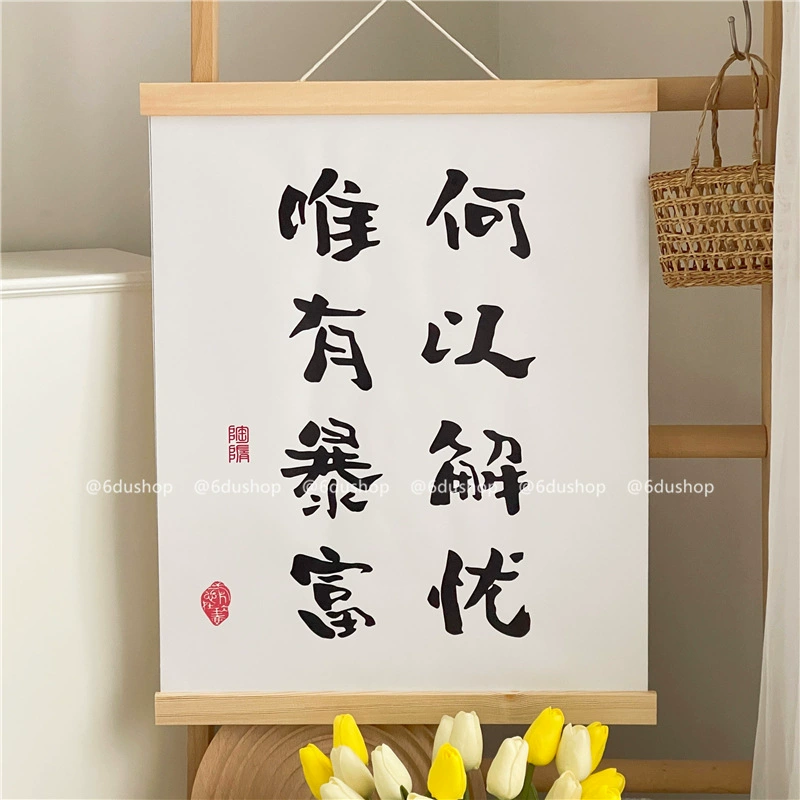 何以解忧
唯有暴富
@6dushop @6dushop @6dushop @6dushop @6dushop @6dushop